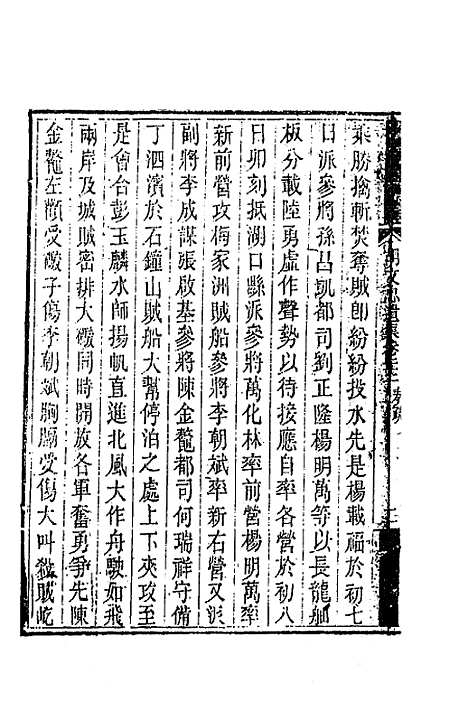 乘勝擒斬焚奪賊卽紛紛投水先是楊載福於初七
日派參將孫昌凱都司劉正隆楊明萬等以長龍舢
板分載陸勇虛作聲勢以待接應自率各營於初八
日卯刻抵湖口縣派參將萬化林率前營楊明萬率
新前營攻梅家洲賊船參將李朝斌率新右營又派
副將李成謀張啟基參將陳金鼇都司何瑞祥守備
丁泗濱於石鐘山賊船大幫停泊之處上下夾攻至
是會合彭玉麟水師揚帆直進北風大作舟駛如飛
兩岸及城賊密排大礮同時開放各軍奮勇爭先陳
金鼇左顴受礮子傷李朝斌胸膈受傷大叫殺賊屹